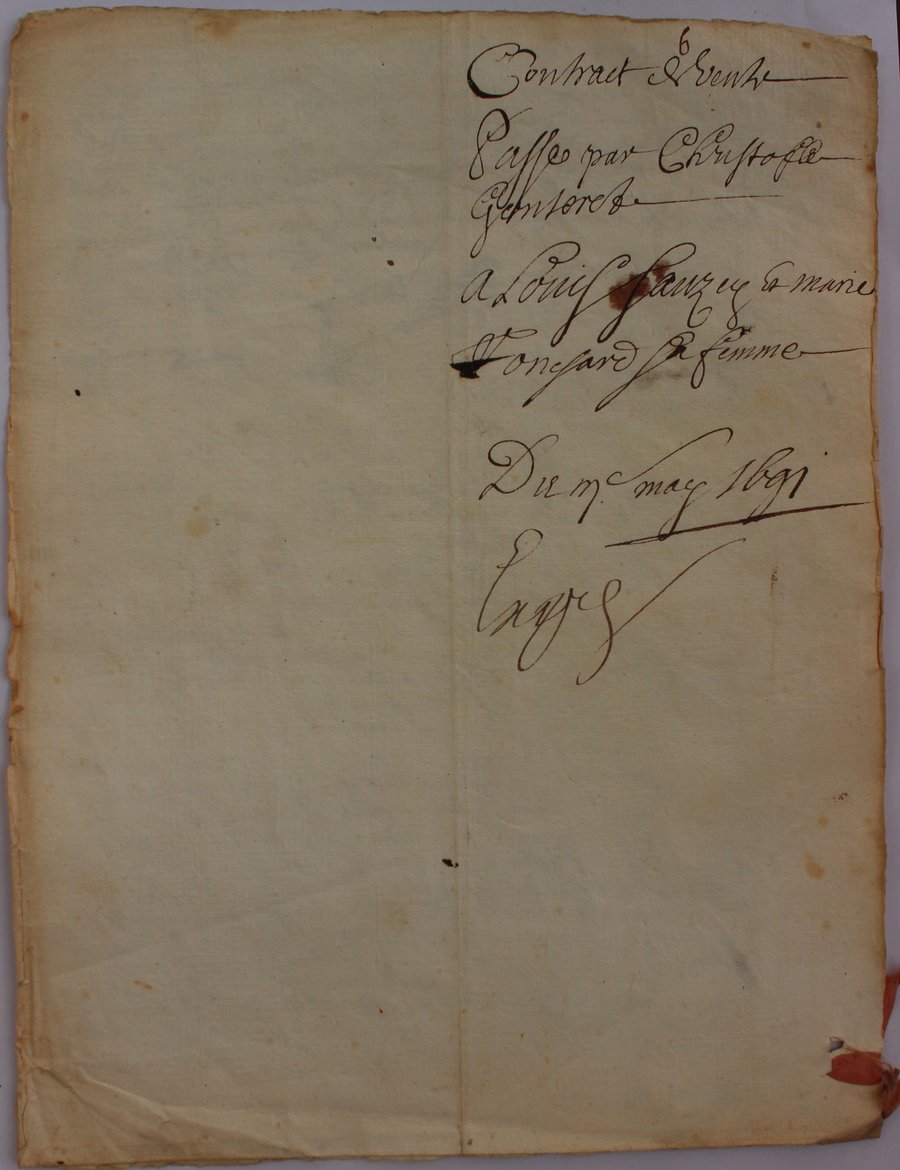 6
Contract de vente
Passé par Christofle
Genteret
a Louis Sauzey Et marie
Ponchard sa femme
Du mc may 1691